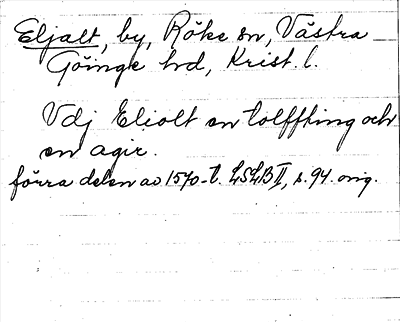 Eljalt, by, Röke sn, Västra
Göinge hd, Krist. l.
Vdj Eliolt en tolffting och
en agir.
förra delen av 1570-t. LSLB II, s. 94. orig.